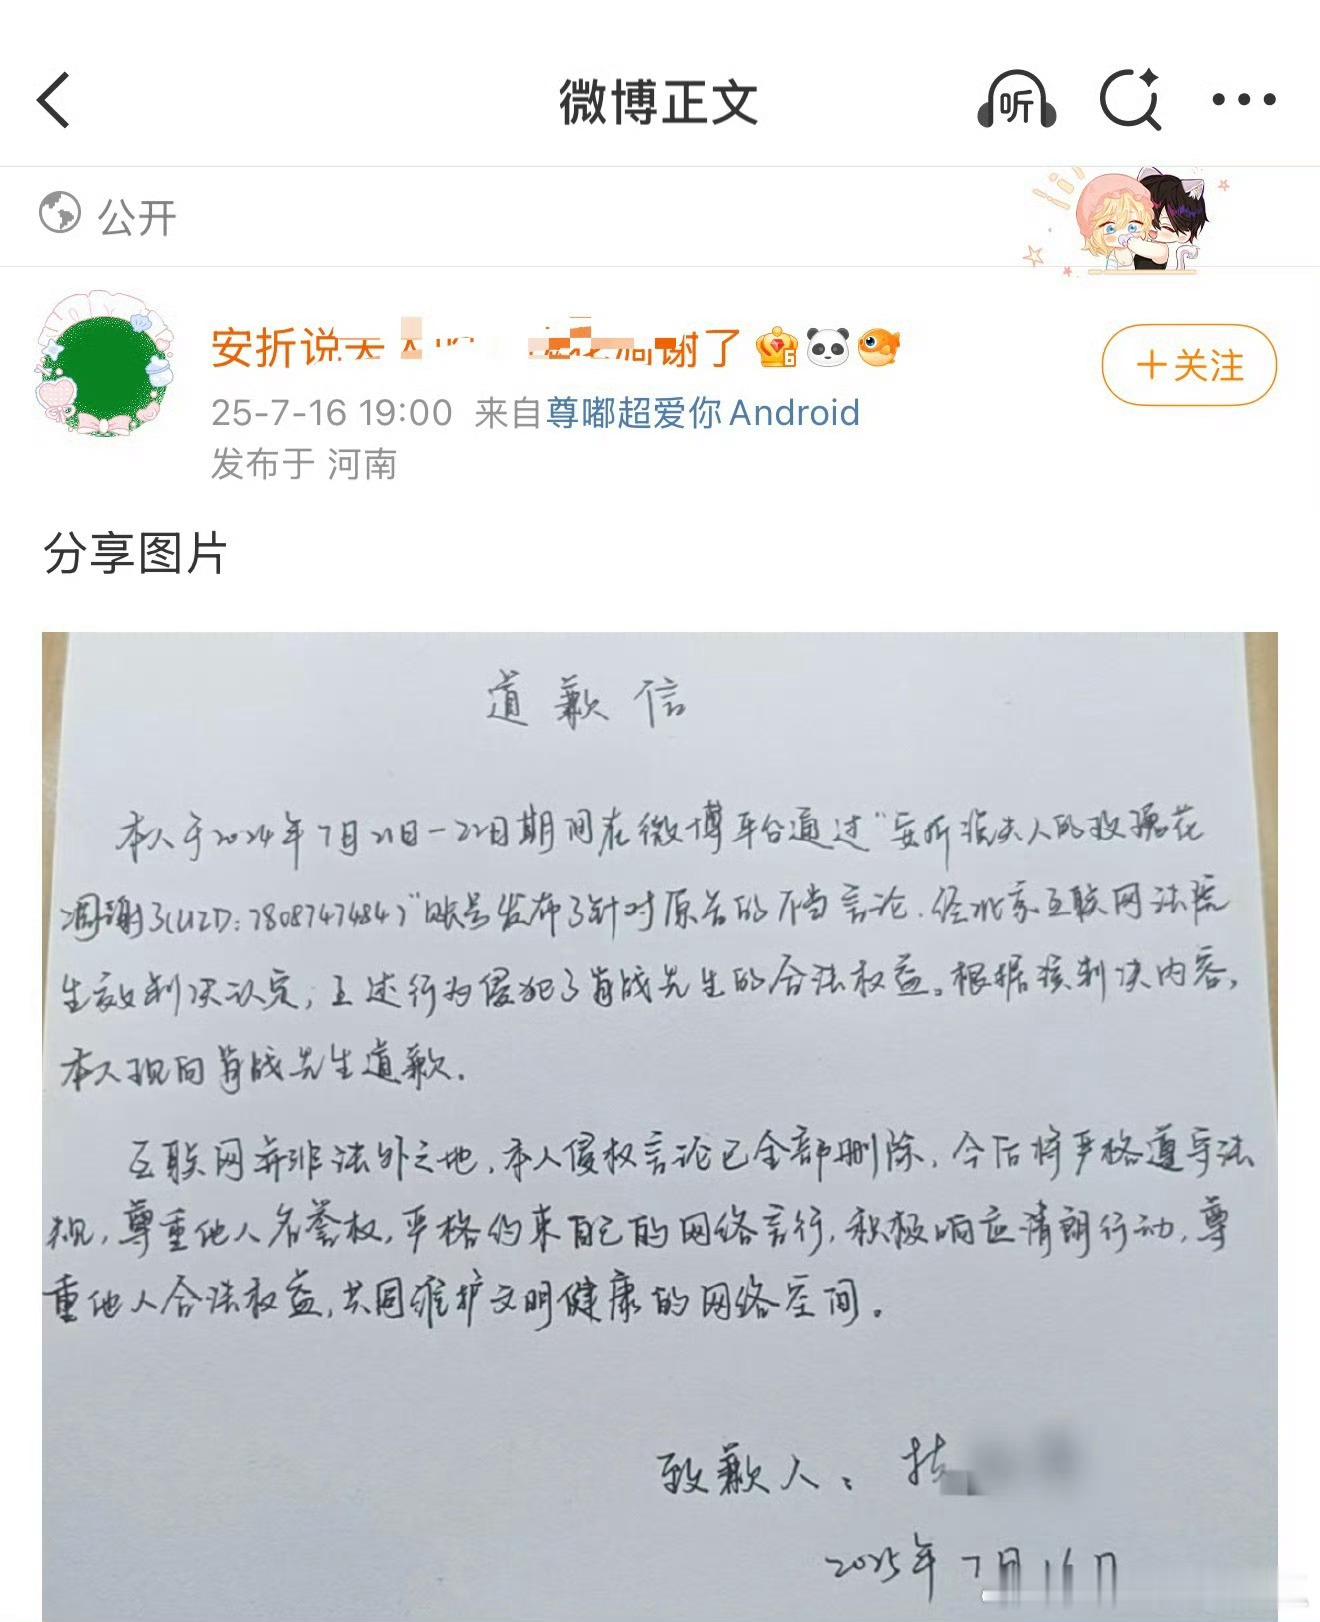 微博正文
听
公开
安折说 谢了
6
+关注
25-7-16 19:00 来自尊嘟超爱你Android
发布于 河南
分享图片
道歉信
本人于2024年7月21日-22日期间在微博平台通过"安折说夫人的玫瑰花
凋谢了(UID:7808747484)"账号发布了针对原告的不当言论.经北京互联网法院
生效判决认定,上述行为侵犯了肖战先生的合法权益。根据该判决内容,
本人现向肖战先生道歉.
互联网并非法外之地,本人侵权言论已全部删除,今后将严格遵守法
规,尊重他人名誉权,严格约束自己的网络言行,积极响应清朗行动,尊
重他人合法权益,共同维护文明健康的网络空间。
致歉人:
2025年7月16日